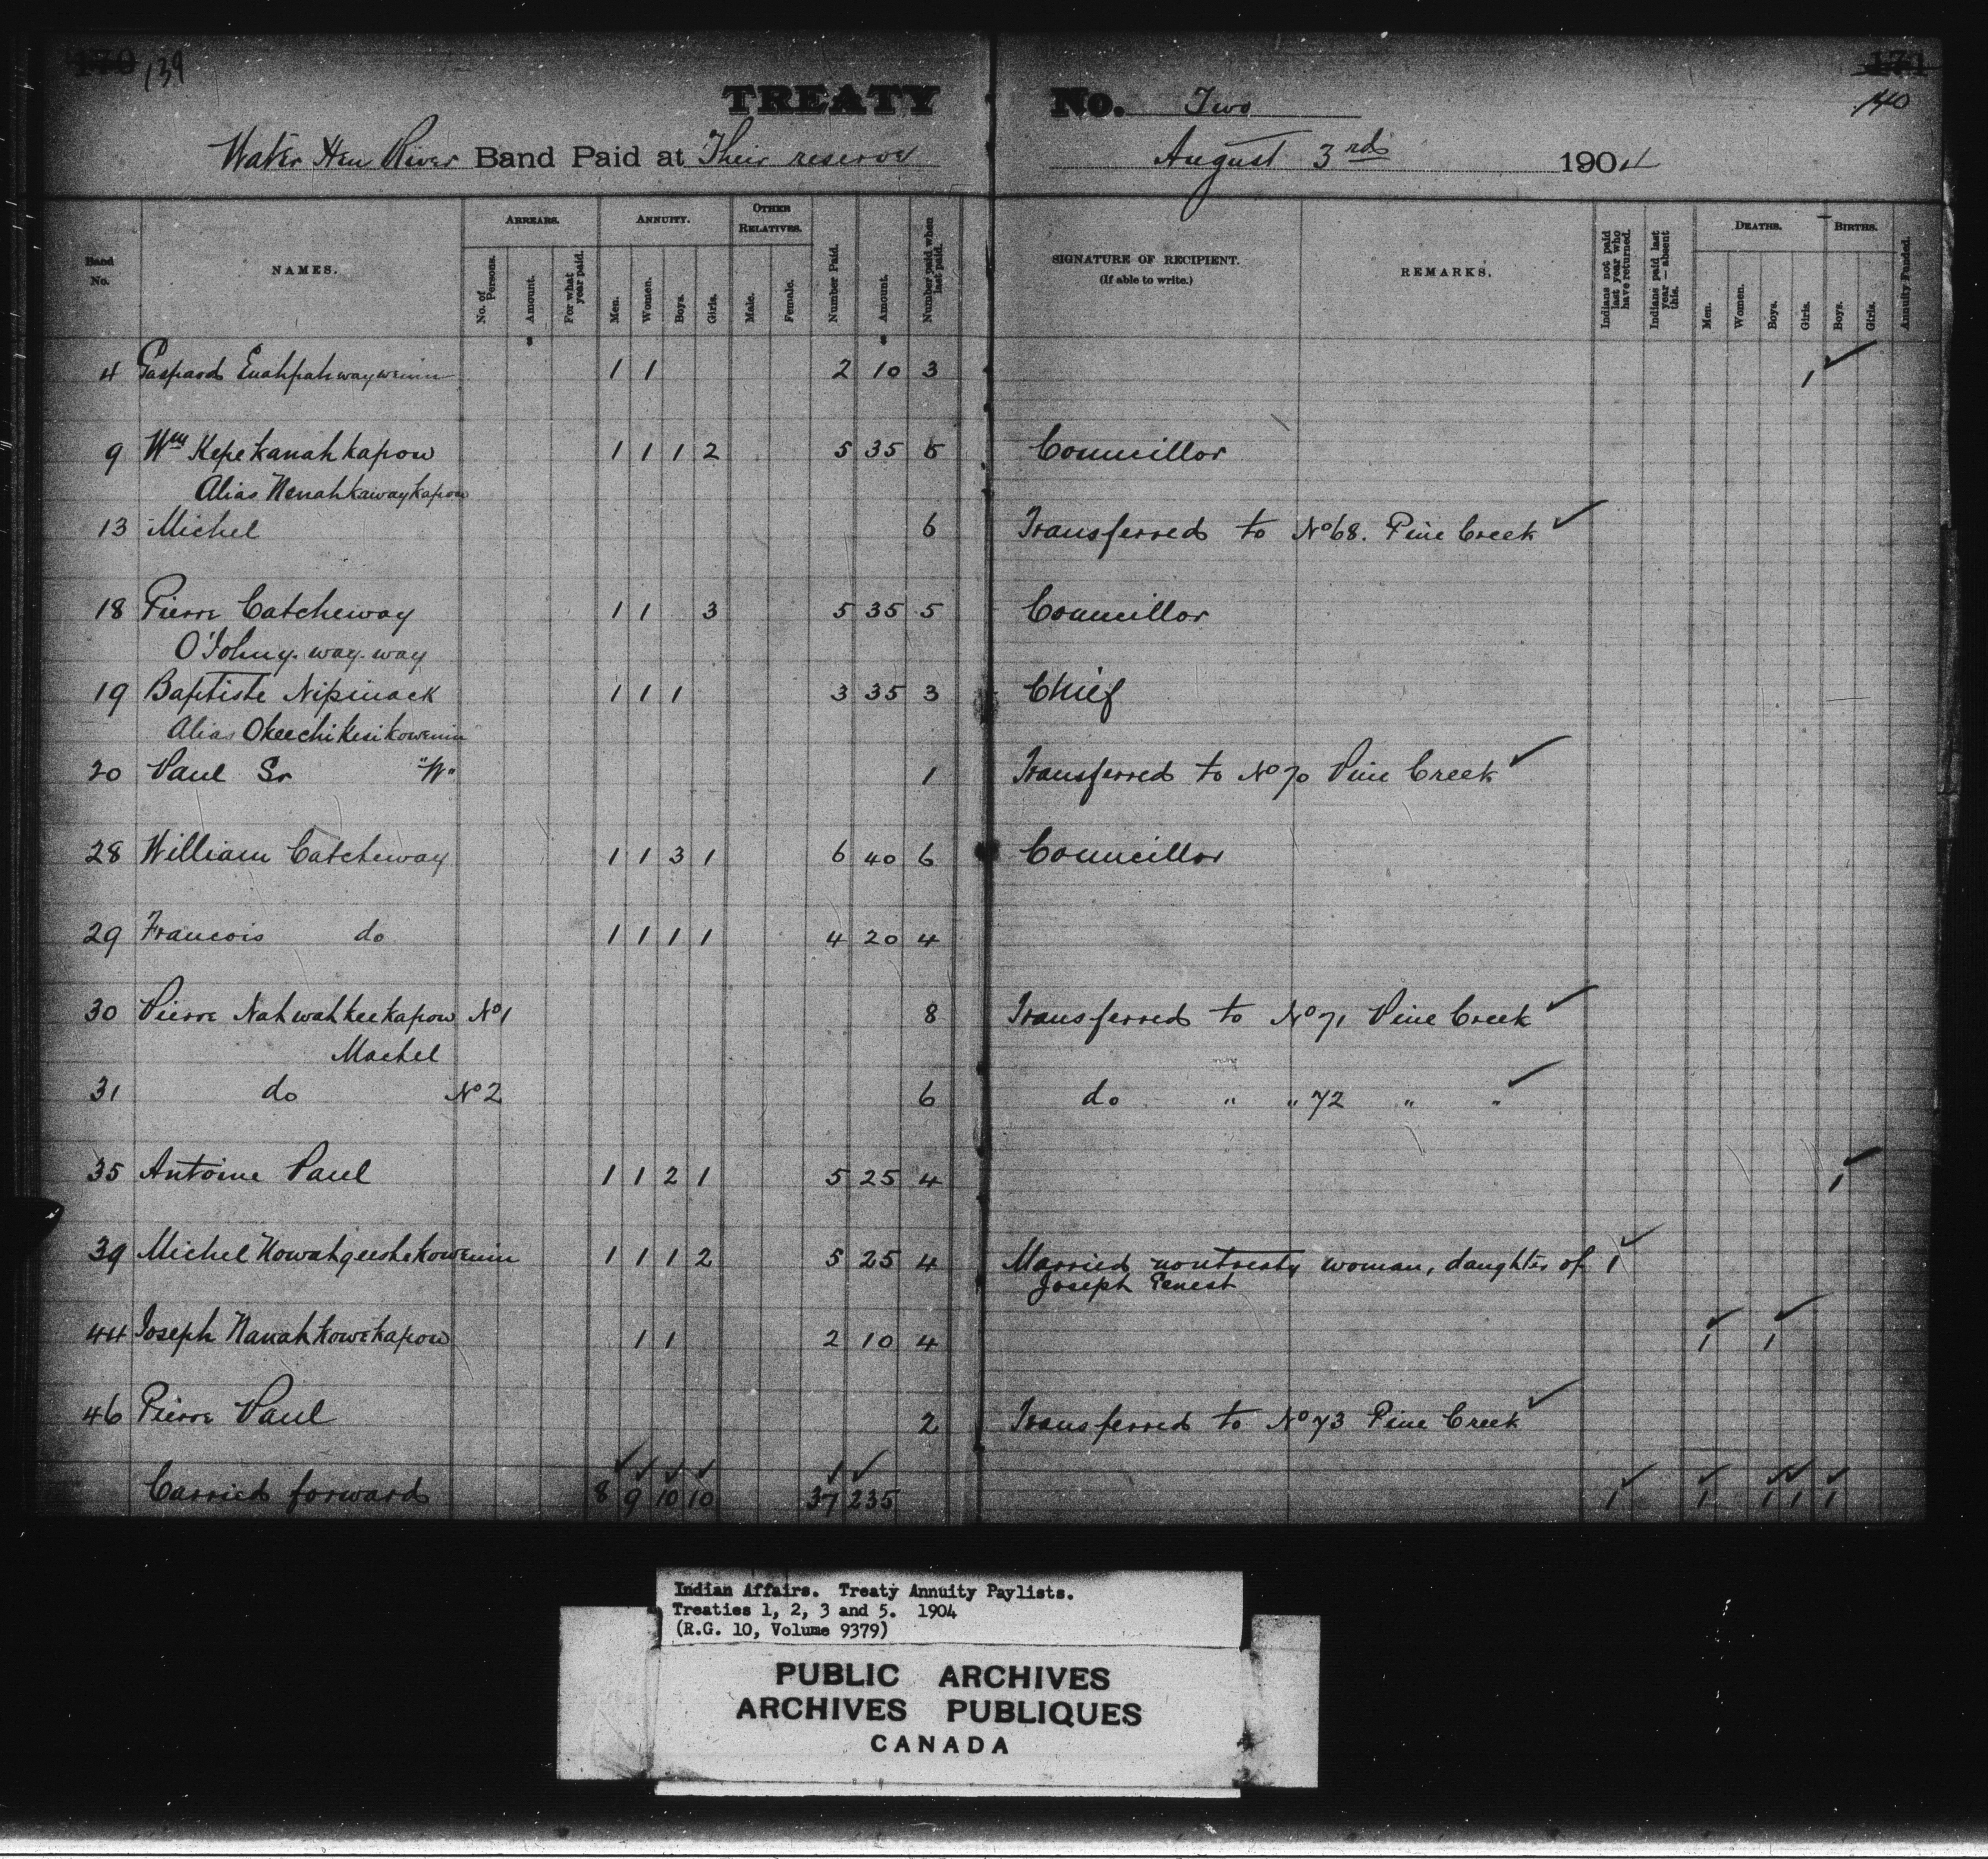 170 139
171
140
TREATY No. Two
Water Hen River Band Paid at Their reserve August 3rd 1904
Band No.
NAMES.
ARREARS.
No. of Persons.
Amount.
For what year paid.
ANNUITY.
Men.
Women.
Boys.
Girls.
OTHER RELATIVES.
Male.
Female.
Number Paid.
Amount.
Number paid when last paid.
SIGNATURE OF RECIPIENT.
(If able to write.)
REMARKS.
Indians not paid last year who have returned.
Indians paid last year—absent this.
DEATHS.
Men.
Women.
Boys.
Girls.
BIRTHS.
Boys.
Girls.
Annuity Funded.
4 Gaspard Enahpahwaywenin 1 1 2 10 3 1
9 Wm Kepekanahkapow 1 1 1 2 5 35 5 Councillor
Alias Nenahkawaykapow
13 Michel 6 Transferred to No 68. Pine Creek
18 Pierre Catcheway 1 1 3 5 35 5 Councillor
O'Johny-way-way
19 Baptiste Nipinack 1 1 1 3 35 3 Chief
Alias Okeechikesikowenin
20 Paul Sr "W" 1 Transferred to No 70 Pine Creek
28 William Catcheway 1 1 3 1 6 40 6 Councillor
29 Francois do 1 1 1 1 4 20 4
30 Pierre Nahwahkeekapow No 1 8 Transferred to No 71 Pine Creek
Machel
31 do No 2 6 do " " 72 " "
35 Antoine Paul 1 1 2 1 5 25 4 1
39 Michel Nowahgeeshekowenin 1 1 1 2 5 25 4 Married nontreaty woman, daughter of 1
Joseph Penest
44 Joseph Nanahkowekapow 1 1 2 10 4 1 1
46 Pierre Paul 2 Transferred to No 73 Pine Creek
Carried forward 8 9 10 10 37 235 1 1 1 1 1
Indian Affairs. Treaty Annuity Paylists.
Treaties 1, 2, 3 and 5. 1904
(R.G. 10, Volume 9379)
PUBLIC ARCHIVES
ARCHIVES PUBLIQUES
CANADA